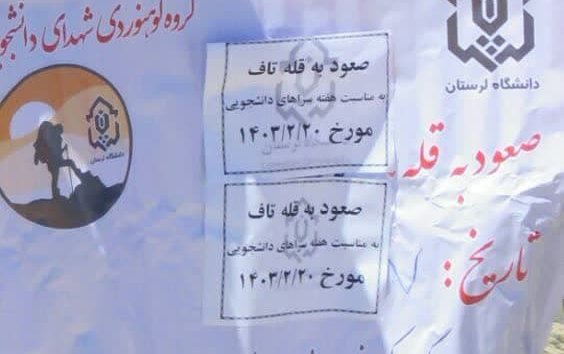 گروه کوهنوردی شهدای دانشجو
دانشگاه لرستان
دانشگاه لرستان
صعود به قله
تاریخ :
صعود به قله تاف
به مناسبت هفته سراهای دانشجویی
مورخ ۱۴۰۳/۲/۲۰
صعود به قله تاف
به مناسبت هفته سراهای دانشجویی
مورخ ۱۴۰۳/۲/۲۰